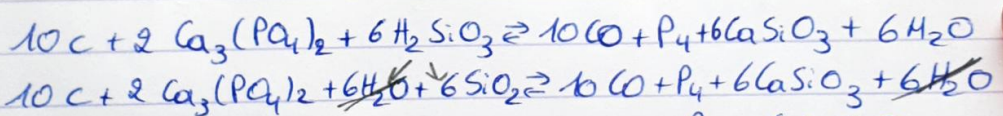 10C + 2 Ca₃(PO₄)₂ + 6H₂SiO₃ ⇌ 10CO + P₄ + 6CaSiO₃ + 6H₂O
10C + 2 Ca₃(PO₄)₂ + 6H₂O + 6SiO₂ ⇌ 10CO + P₄ + 6CaSiO₃ + 6H₂O